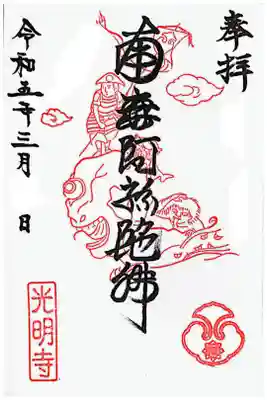 奉拝
南無阿弥陀佛
令和五年三月 日
光明寺